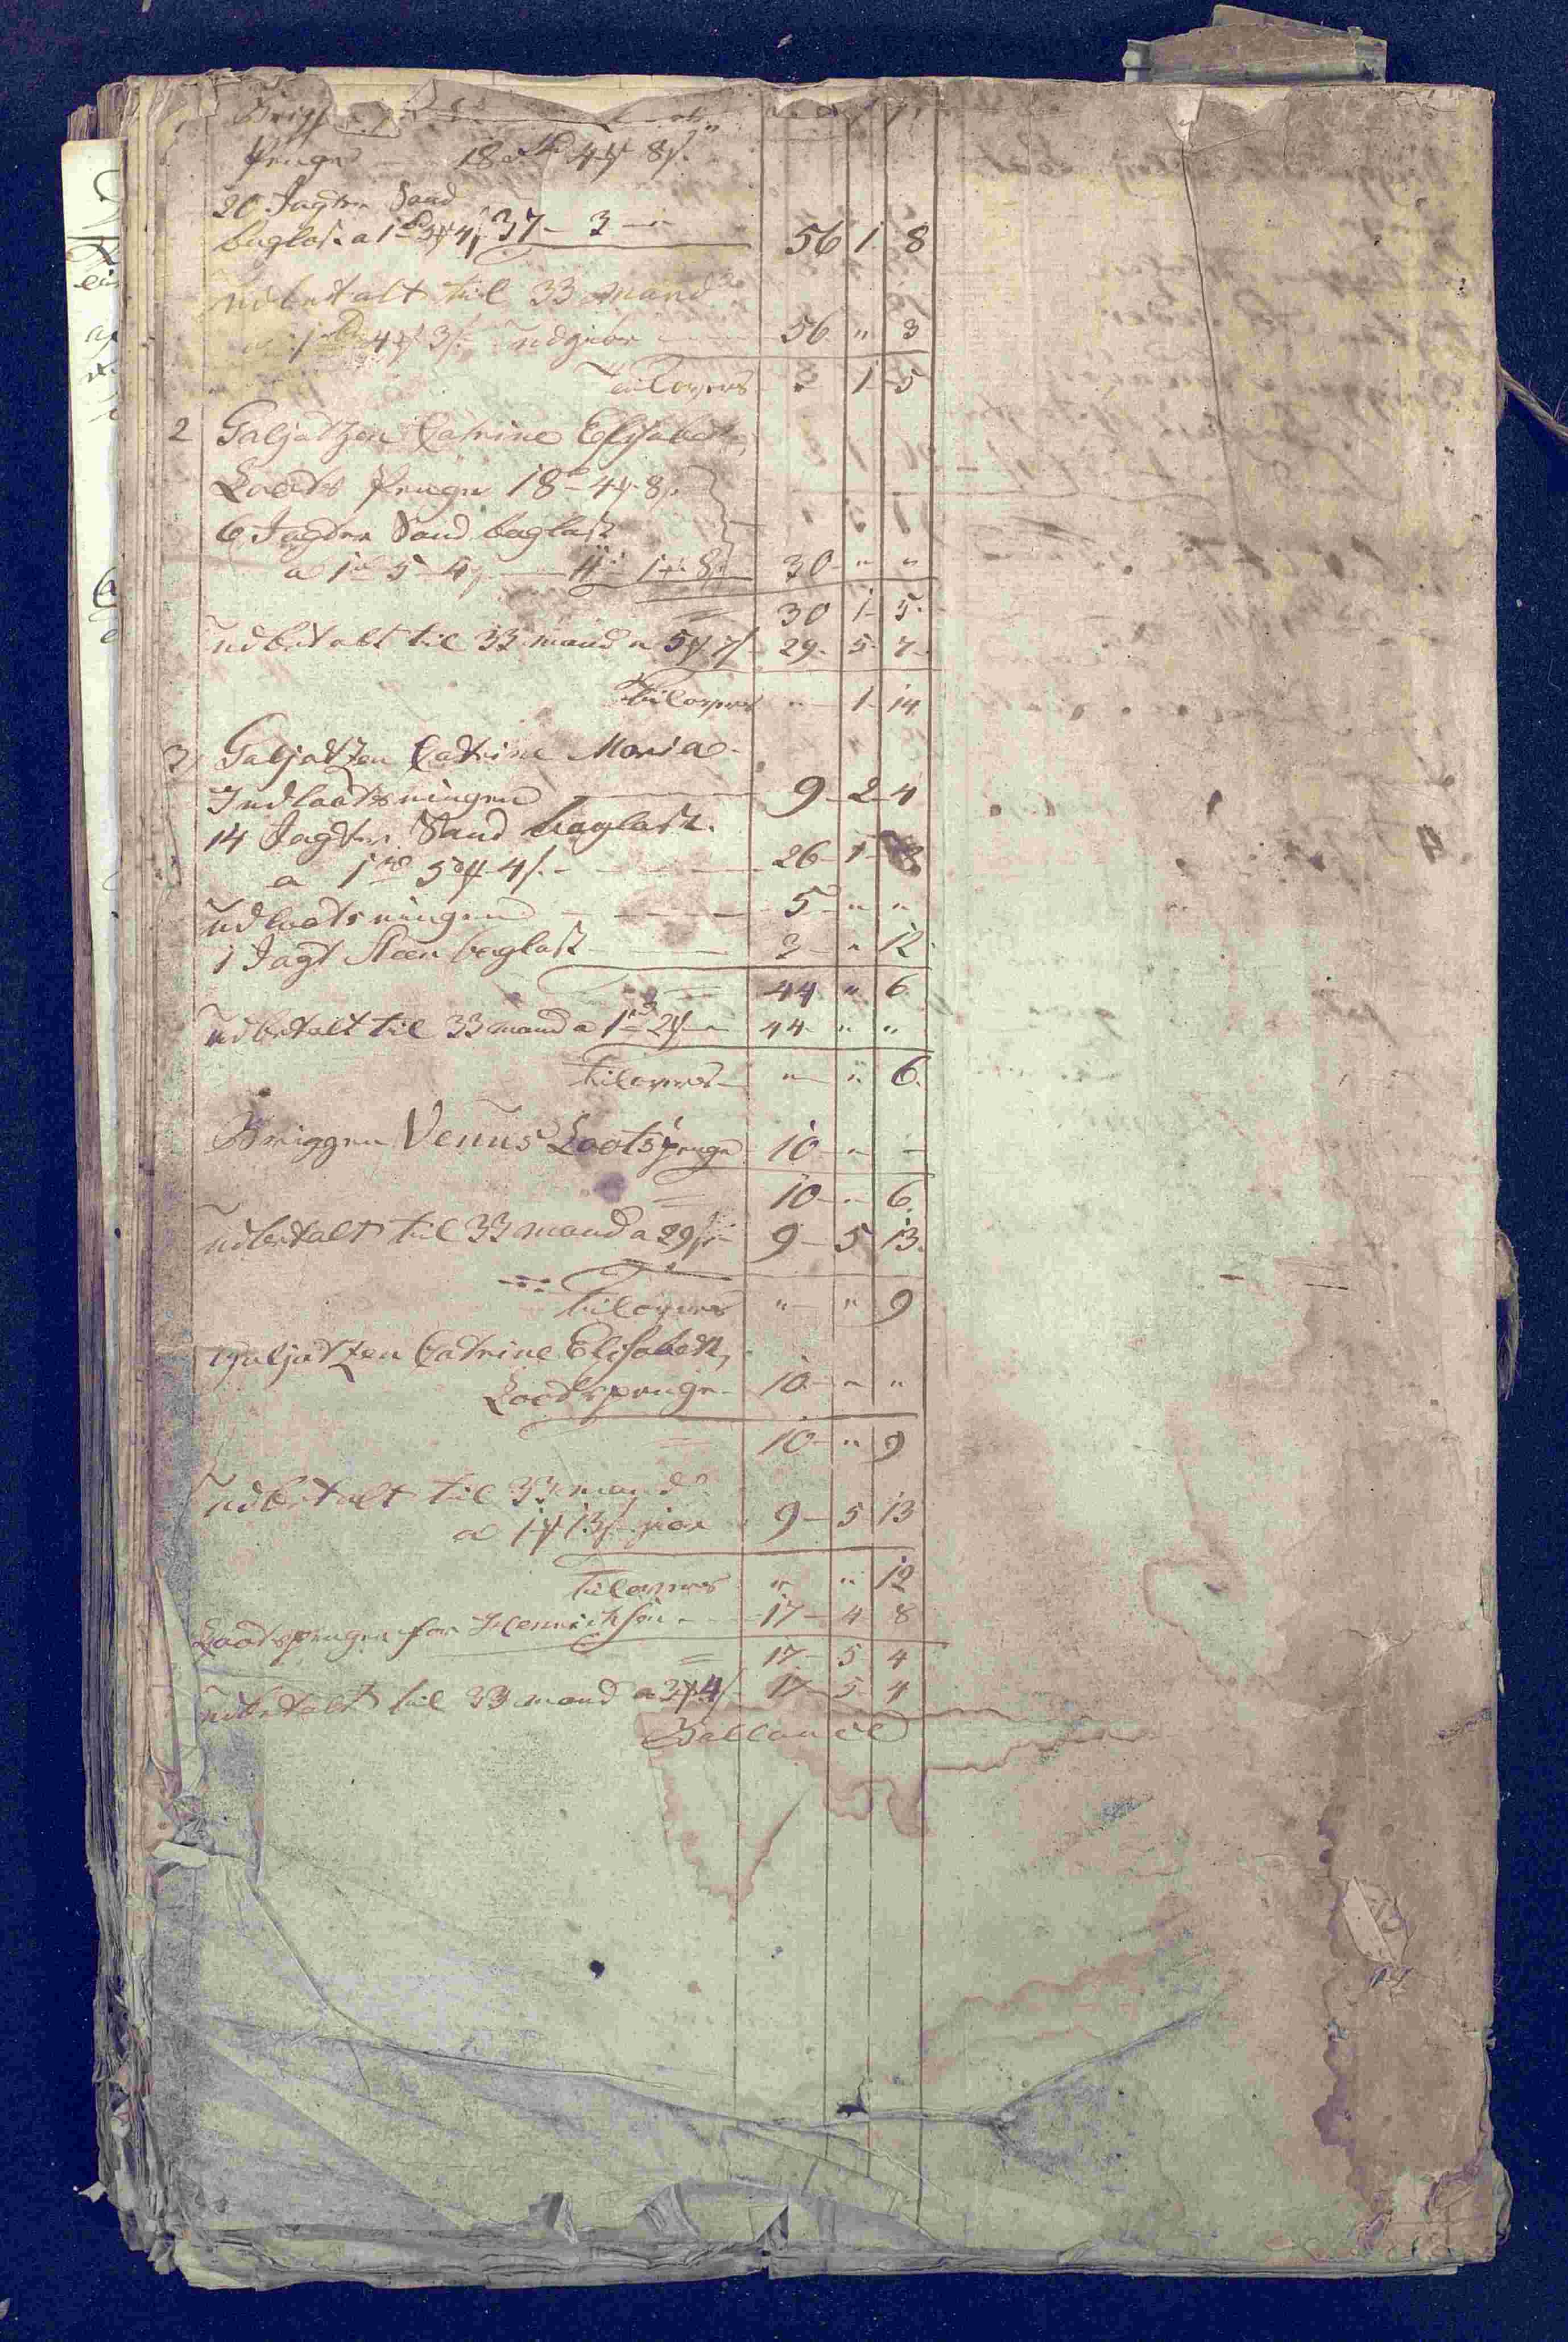 Brigg
Penge 18 rd 4 ß 8 s.
20 Jagter Sand
baglast a 1 rd 5 ß 4 s 37 - 3 - " 56 1 8
Udbetalt til 33 Mand
a 1 rd 4 ß 3 s - udgiør 56 " 3
Tilovers " 1 5
2 Galjatzen Catrine Elisabeth,
Loots Penge 18 - 4 ß 8 s.
6 Jagter Sand baglast
a 1 rd 5 - 4 s. 11 - 1 ß 8 30 " "
30 1 5.
Udbetalt til 33 mand a 5 ß 7 s 29. 5. 7.
Tilovers " 1 14
3 Galjatzen Catrine Maria.
Indlootsningen 9 2 4
14 Jagter Sand baglast.
a 1 rd 5 ß 4 s. 26 1 8
Udlootsningen 5 " "
1 Jagt Steen baglast 3 " 12
44 " 6
Udbetalt til 33 mand a 1 rd 2 ß " 44 " "
Tilovers " " 6.
Briggen Venus Lootspenge 10 " "
10 " 6.
Udbetalt til 33 mand a 29 s 9 5 13.
Tilovers " " 9
Galjatzen Catrine Elisabeth,
Lootspenge 10 " "
10 " 9
Udbetalt til 33 mand
a 1 ß 13 s giør 9 5 13
Tilovers " " 12
Lootspenger for Henrichsen 17 4 8
17 5 4
Udbetalt til 33 mand a 3 ß 4 s 17 5 4
Ballance